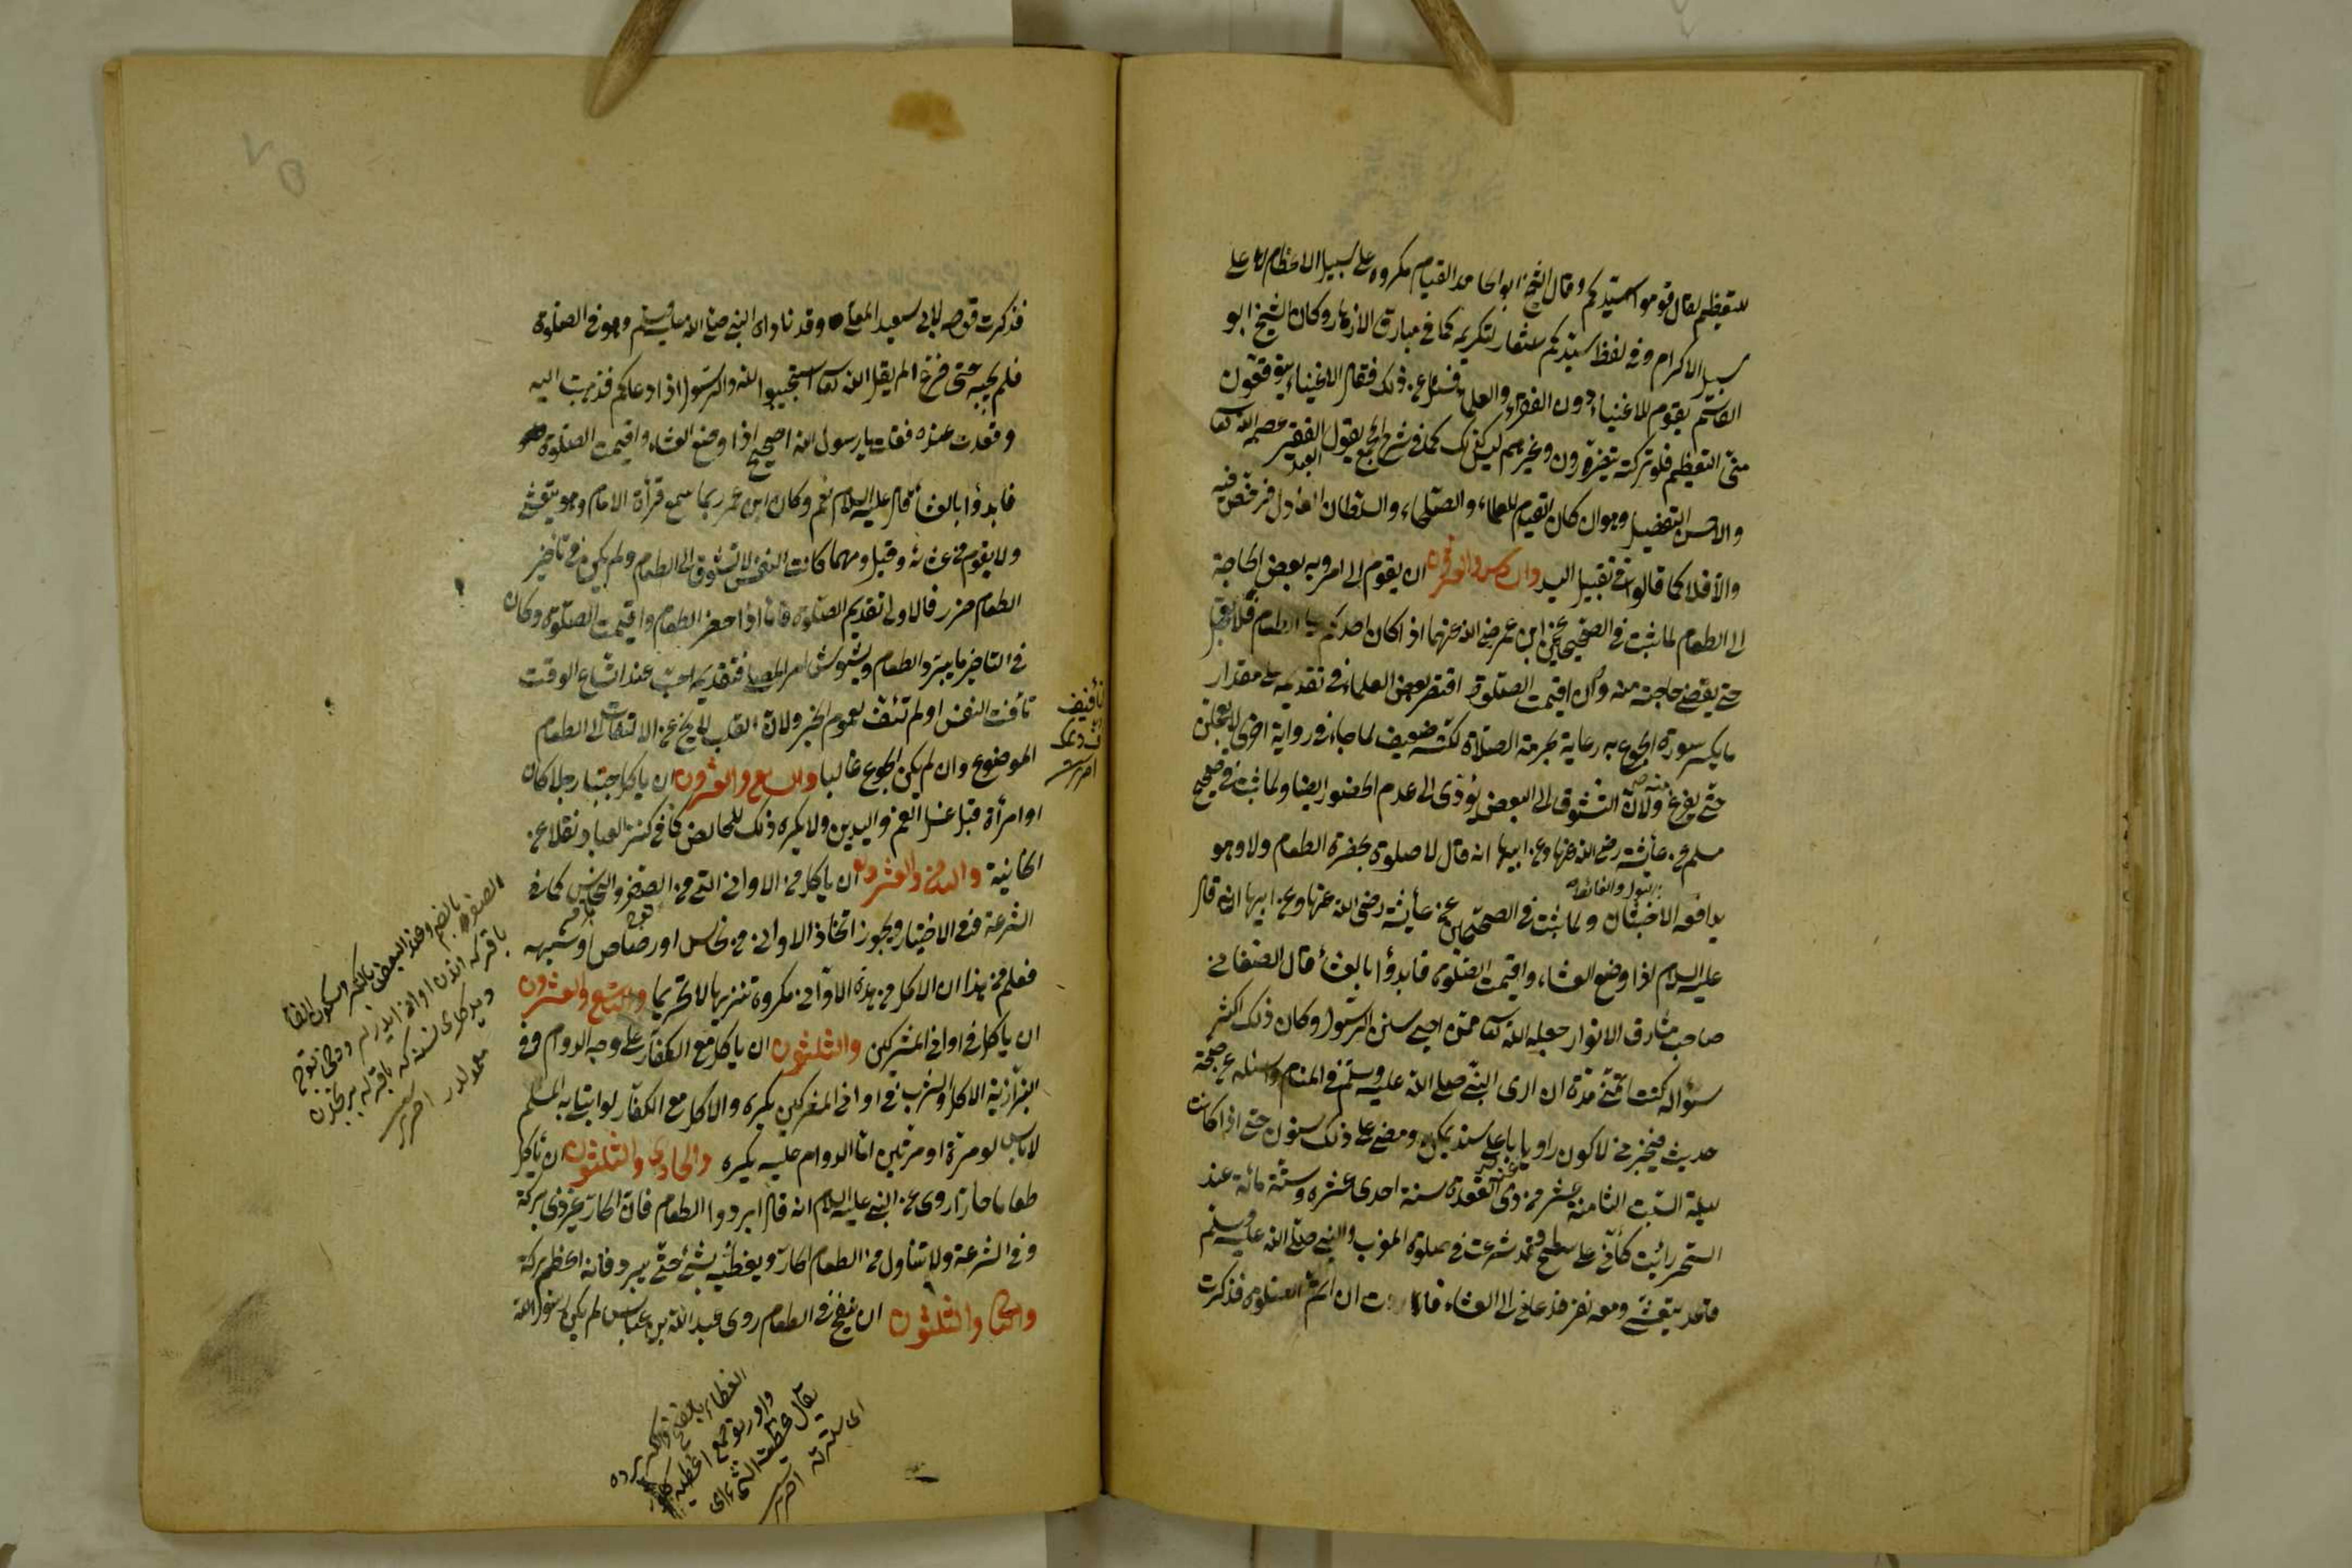 للتعظيم لقال قوموا لسيدكم وقال الشيخ ابو الحامد القيام مكروه على سبيل الاعظام لا على
سبيل الاكرام وفي لفظ سيدكم شعار لتكريمه كما في مبارق الازهار وكان الشيخ ابو
القاسم يقوم للاغنياء دون الفقراء والعلماء فسئل عن ذلك فقال الاغنياء يتوقعون
منى التعظيم فلو تركته يتضررون وغيرهم ليس كذلك كما في شرح المجمع يقول العبد الفقير عصمه الله تعالى
والاحسن التفضيل وهو ان كان القيام للعلماء والصلحاء والسلطان العادل فرخص فيه
والا فلا كما قالوا في تقبيل اليد والسادس والعشرون ان يقوم الى امر وبه بعض الحاجة
الى الطعام لما ثبت في الصحيحين عن ابن عمر رضي الله عنهما اذا كان احدكم على الطعام فلا يعجل
حتى يقضي حاجته منه وان اقيمت الصلوة اقتصر بعض العلماء في تقديمه على مقدار
ما يكسر سورة الجوع به رعاية لحرمة الصلاة لكنه ضعيف لما جاء في رواية اخرى لا يعجلن
حتى يفرغ منه ولان التشوق الى البعض يؤدى الى عدم الحضور ايضا ولما ثبت في صحيح
مسلم عن عائشة رضى الله عنها وعن ابيها انه قال لا صلوة بحضرة الطعام ولا وهو
يدافعه الاخبثان ولما ثبت في الصحيحين عن عائشة رضى الله عنها وعن ابيها انه قال
البول والغائط
عليه السلام اذا وضع العشاء واقيمت الصلوة فابدؤا بالعشاء قال الصغاني
صاحب مشارق الانوار جعله الله تعالى ممن احيى سنن الرسول وكان ذلك اكثر
سؤاله كنت اتمنى مدة ان ارى النبي صلى الله عليه وسلم في المنام واسئله عن صحة
حديث فيخبرني لاكون راويا باعلى سند يمكن ومضى على ذلك سنون حتى اذا كانت
ليلة السبت الثامنة عشر من ذى القعدة سنة احدى عشره وستمائة عند
السحر رأيت كأنى على سطح وقد شرعت في صلوة المغرب والنبي صلى الله عليه وسلم
قاعد يتعشى ومعه نفر فدعاني الى العشاء فاردت ان اتم الصلوة فذكرت
فذكرت قوله لابى سعيد المعلى وقد ناداه النبي صلى الله عليه وسلم وهو في الصلوة
فلم يجبه حتى فرغ الم يقل الله تعالى استجيبوا لله وللرسول اذا دعاكم فذهبت اليه
وقعدت عنده فقلت يا رسول الله اصحيح اذا وضع العشاء واقيمت الصلوة
فابدؤا بالعشاء قال عليه السلام نعم وكان ابن عمر ربما سمع قرأة الامام وهو يتعشى
ولا يقوم من عشائه وقيل ومهما كانت النفس لا تتشوق الى الطعام ولم يكن في تأخير
الطعام ضرر فالاولى تقديم الصلوة فاما اذا حضر الطعام واقيمت الصلوة وكان
في التأخير ما يبرد الطعام ويشوش امر المصلى فتقديمه احب عند اتساع الوقت
تاقت النفس او لم تتق لعموم الخبر ولان القلب لا يخ عن الالتفات الى الطعام
الموضوع وان لم يكن الجوع غالبا والسابع والعشرون ان ياكل جنبا رجلا كان
او امرأة قبل غسل الفم واليدين ولا يكره ذلك للحائض كما في كنز العباد نقلا عن
الخانية والثامن والعشرون ان ياكل في الاوانى التى من الصفر والنحاس كما في
الشرعة ففي الاختيار ويجوز اتخاذ الاوانى من نحاس او رصاص او شبهه
فعلم من هذا ان الاكل في هذه الاوانى مكروه تنزيها لا تحريما والتاسع والعشرون
ان ياكل في اوانى المشركين والثلثون ان ياكل مع الكفار على وجه الدوام ففي
البزازية الاكل والشرب في اوانى المشركين يكره والاكل مع الكفار لو ابتلى به المسلم
لا باس لو مرة او مرتين اما الدوام عليه يكره والحادى والثلثون ان يأكل
طعاما حارا روى عن النبي عليه السلام انه قال ابردوا الطعام فان الحار غير ذى بركة
وفي الشرعة ولا يتناول من الطعام الحار ويغطيه بشئ حتى يبرد فانه اعظم بركة
والثاني والثلثون ان ينفخ في الطعام روى عبد الله بن عباس لم يكن رسول الله
الصفر بالضم وعند البعض بالكسر السكون الفاء
الغطاء بالفتح والكسر پرده
يقال غطيت الشئ اى
اى سترته اخرى